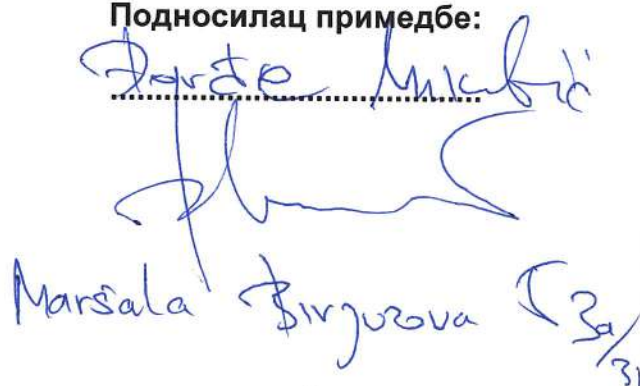 Подносилац примедбе:
Đorđe
Maršala Birjuzova 3a/31